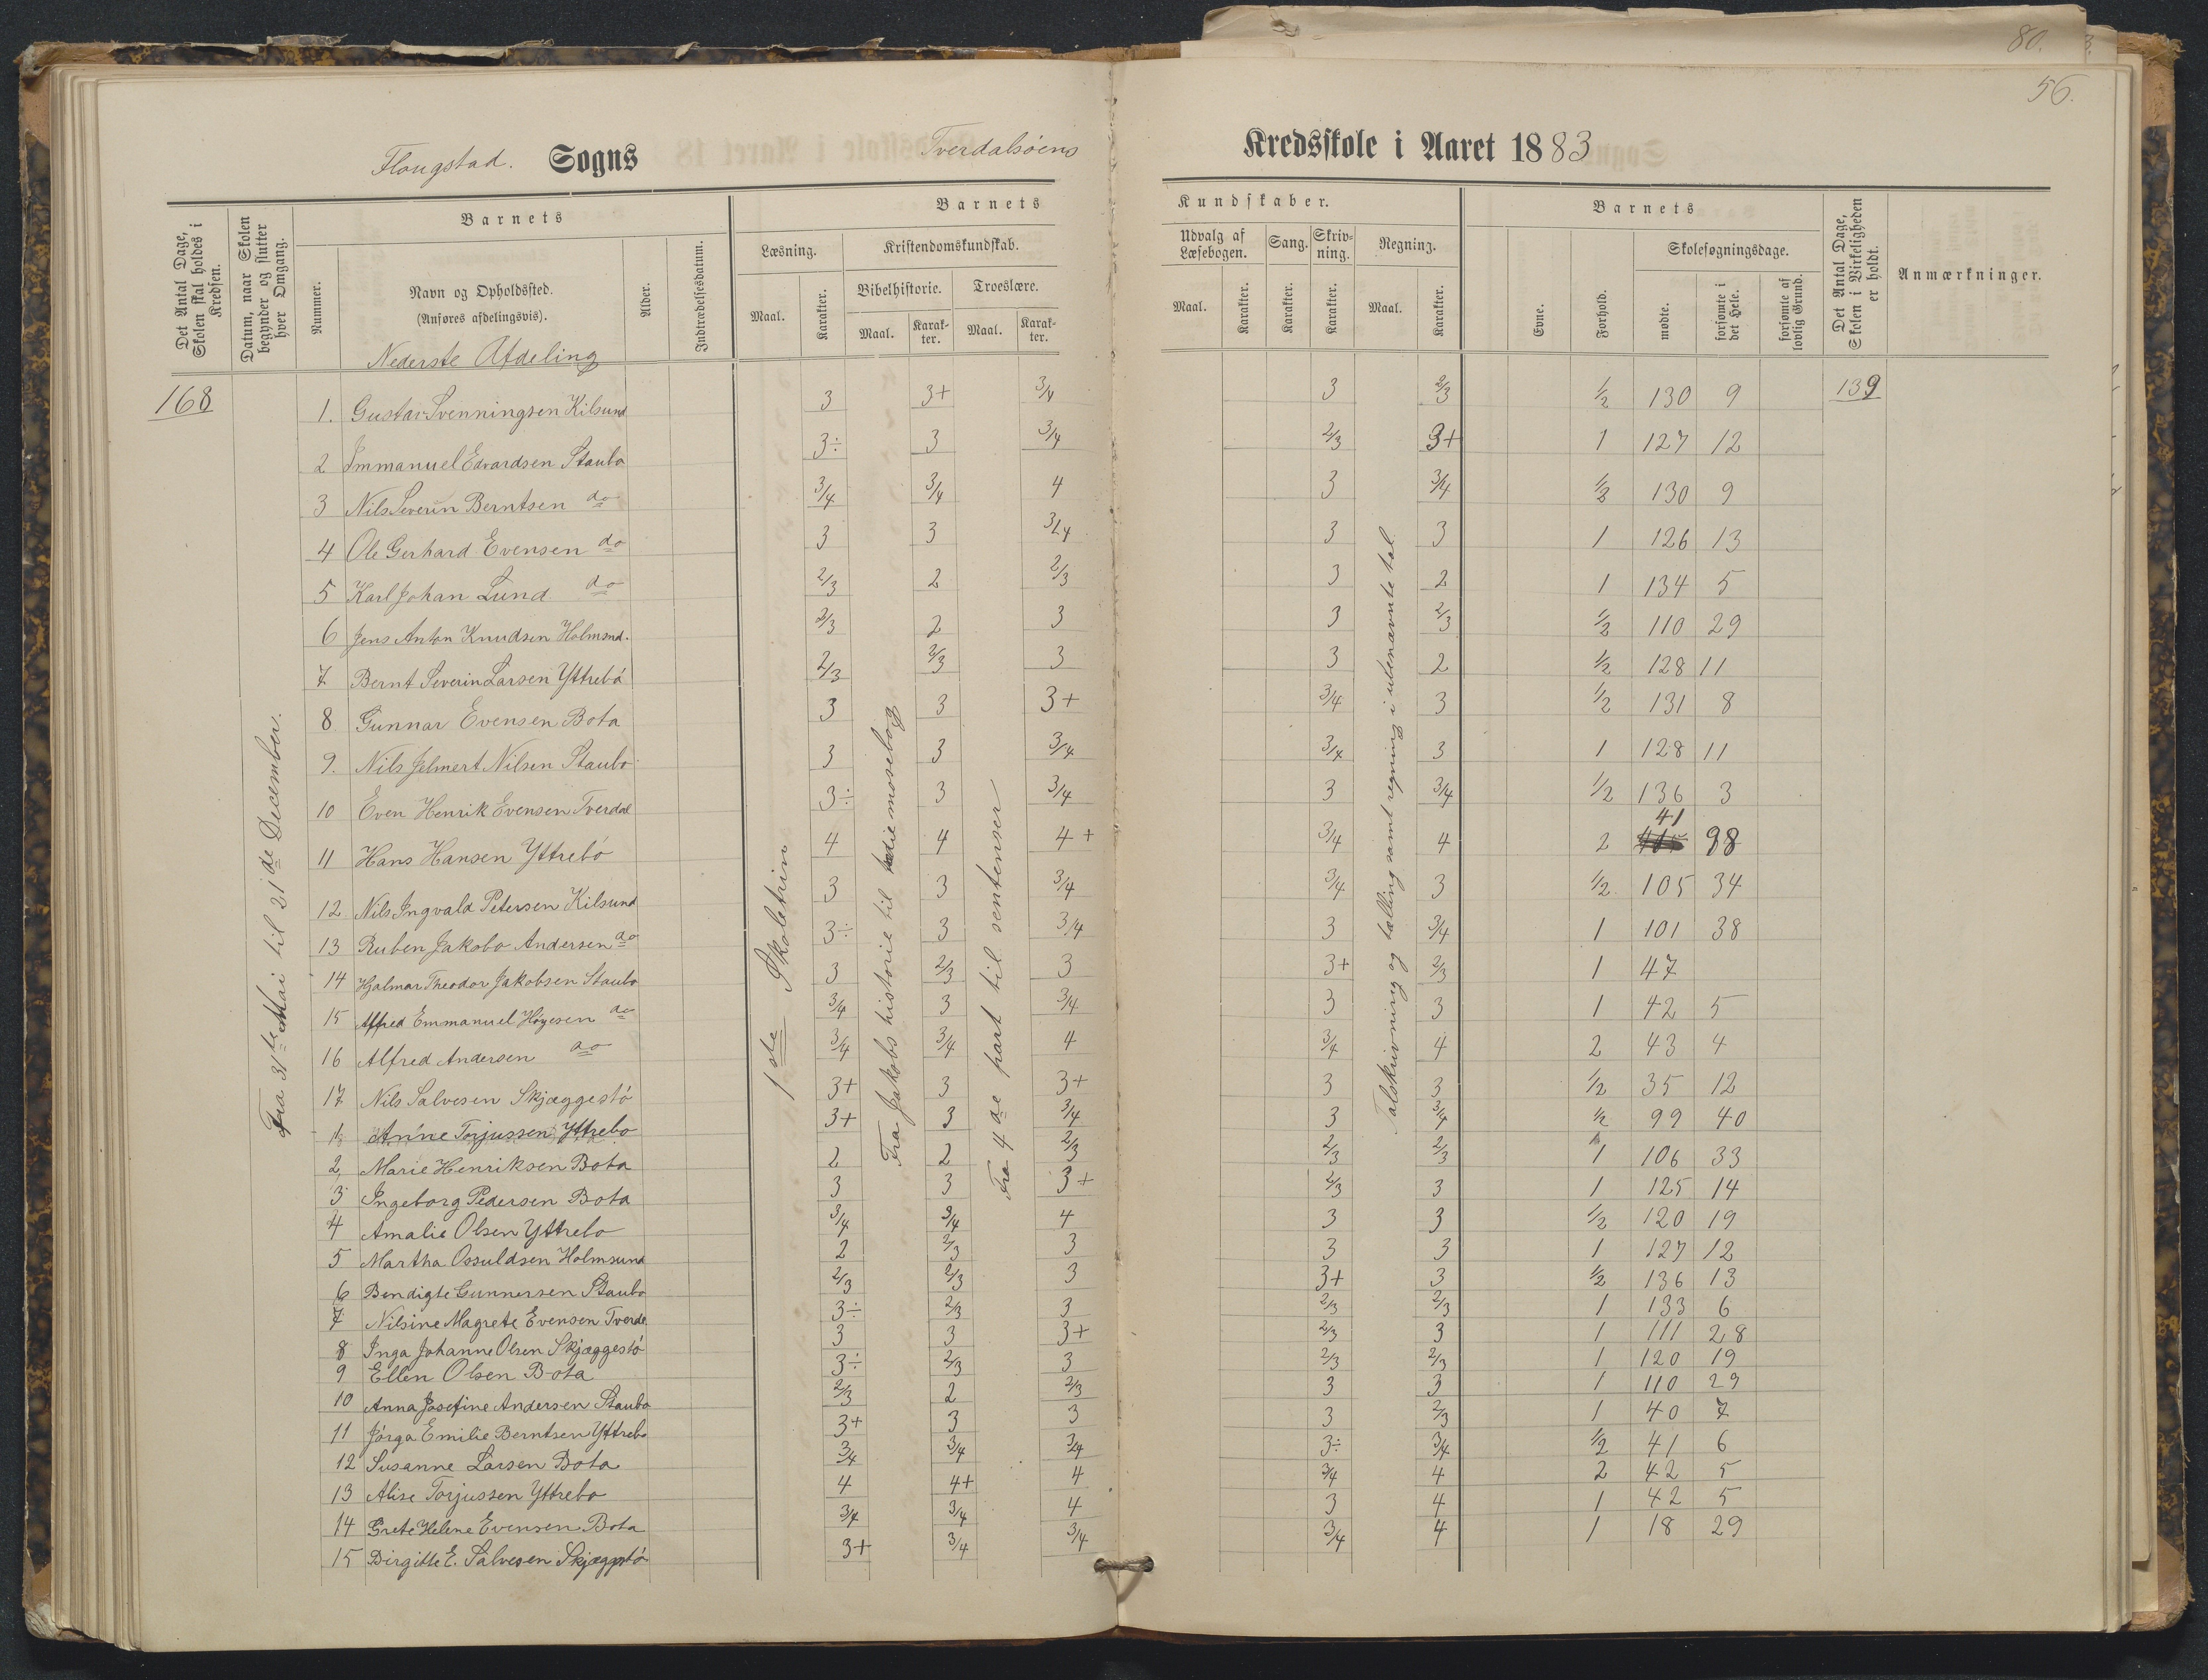 80.
56.
Flougstad. Sogns Tverdalsöens Kredsskole i Aaret 1883
Det Antal Dage, Skolen skal holdes i Kredsen.
Datum, naar Skolen begynder og slutter hver Omgang.
Barnets
Nummer.
Navn og Opholdssted.
(Anføres afdelingsvis).
Alder.
Indtrædelsesdatum.
Barnets Kundskaber.
Læsning.
Maal. Karakter.
Kristendomskundskab.
Bibelhistorie. Troeslære.
Maal. Karakter. Maal. Karakter.
Udvalg af Læsebogen.
Maal. Karakter.
Sang. Karakter.
Skrivning. Karakter.
Regning.
Maal. Karakter.
Barnets
Evne. Forhold.
Skolesøgningsdage.
mødte. forsømte i det Hele. forsømte af lovlig Grund.
Det Antal Dage, Skolen i Virkeligheden er holdt.
Anmærkninger.
Nederste Afdeling
168
139
Fra 31te Mai til 21de December.
1ste Skoletrin
Fra Jakobs historie til die mosebog
Fra 4de part til sentenser
Talskrivning og tælling samt regning i ubenævnte tal.
1. Gustav Svenningsen Kilsund 3 3+ 3/4 3 2/3 1/2 130 9
2 Immanuel Edvardsen Staubo 3÷ 3 3/4 2/3 3+ 1 127 12
3 Nils Severin Berntsen do 3/4 3/4 4 3 3/4 1/2 130 9
4 Ole Gerhard Evensen do 3 3 3/4 3 3 1 126 13
5 Karl Johan Lund do 2/3 2 2/3 3 2 1 134 5
6 Jens Anton Knudsen Holmsnd. 2/3 2 3 3 2/3 1/2 110 29
7 Bernt Severin Larsen Yttrebö 2/3 2/3 3 3 2 1/2 128 11
8 Gunnar Evensen Bota 3 3 3+ 3/4 3 1/2 131 8
9. Nils Jelmert Nilsen Staubo 3 3 3/4 3/4 3 1 128 11
10 Even Henrik Evensen Tverdal 3÷ 3 3/4 3 3/4 1/2 136 3
11 Hans Hansen Yttrebö 4 4 4+ 3/4 4 2 41 98
12 Nils Ingvald Petersen Kilsund 3 3 3/4 3/4 3 1/2 105 34
13 Ruben Jakobo Andersen do 3÷ 3 3/4 3 3/4 1 101 38
14 Hjalmar Theodor Jakobsen Staubo 3 2/3 3 3+ 2/3 1 47
15 Alfred Emmanuel Höyesen do 3/4 3 3/4 3 3 1 42 5
16 Alfred Andersen do 3/4 3/4 4 3/4 4 2 43 4
17 Nils Salvesen Skjæggestö 3+ 3 3+ 3 3 1/2 35 12
1 Anne Torjussen Yttrebo 3+ 3 3/4 3 3/4 1/2 99 40
2 Marie Henriksen Bota 2 2 2/3 2/3 2/3 1 106 33
3 Ingeborg Pedersen Bota 3 3 3+ 2/3 3 1 125 14
4 Amalie Olsen Yttrebo 3/4 3/4 4 3 3 1/2 120 19
5 Martha Ossuldsen Holmsund 2 2/3 3 3 3 1 127 12
6 Bendigte Gunnersen Staubo 2/3 2/3 3 3+ 3 1/2 136 13
7 Nilsine Magrete Evensen Tverde 3÷ 2/3 3 2/3 2/3 1 133 6
8 Inga Johanne Olsen Skjæggestö 3 3 3+ 2/3 3 1 111 28
9 Ellen Olsen Bota 3÷ 2/3 3 2/3 2/3 1 120 19
10 Anna Josefine Andersen Staubo 2/3 2 2/3 3 3 1 110 29
11 Jörga Emilie Berntsen Yttrebo 3+ 3 3 3 2/3 1 40 7
12 Susanne Larsen Bota 3/4 3/4 3/4 3÷ 3/4 1/2 41 6
13 Alise Torjussen Yttrebo 4 4+ 4 3/4 4 2 42 5
14 Grete Helene Evensen Bota 3/4 3/4 4 3 4 1 42 5
15 Birgitte E. Salvesen Skjæggestö 3+ 3/4 3/4 3/4 4 1 18 29